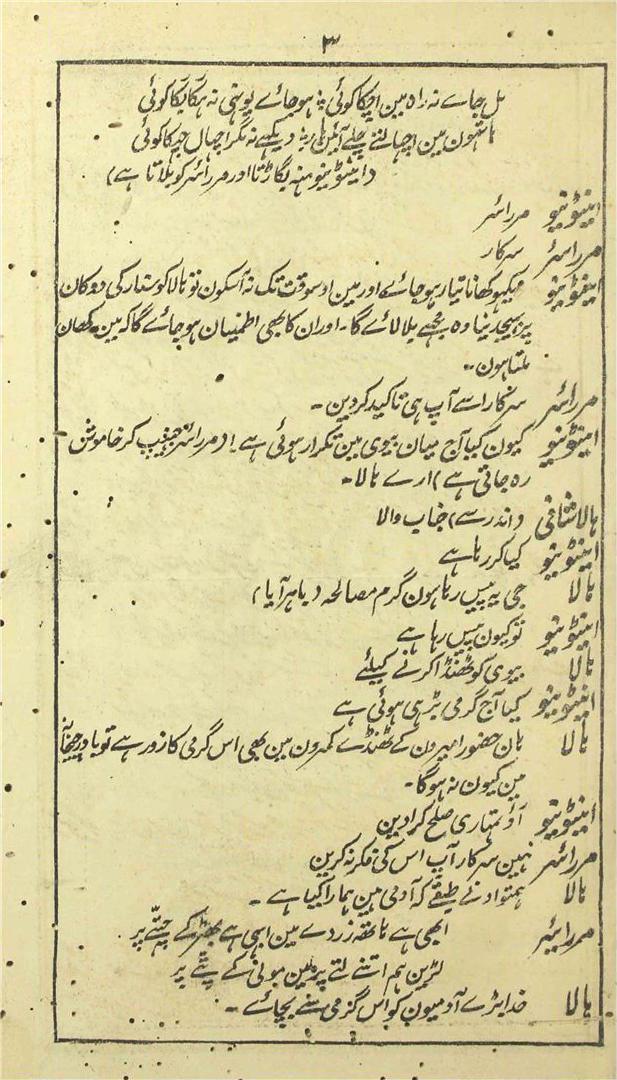 ۳
مل جاے نہ راہ مین اچکا کوئی پہ ہوجاے یونہی نہ ہکا بکا کوئی
ہاتھون مین اچھالتے چلے آئین دیکھے نہ مگر اچھال چھکا کوئی
(اینٹونیو منہ بگاڑتا اور مررائسر کو بلاتا ہے)
اینٹونیو مررائسر
مررائسر سرکار
اینٹونیو دیکھو کھانا تیار ہوجاے اور مین اوسوقت تک نہ آسکون تو ہالا کو ستار کی دوکان
پر بھیجدینا وہ مجھے بلا لاے گا۔ اور ان کا بھی اطمینان ہوجاے گا کہ مین کہان
ملتا ہون۔
مررائسر سرکار اسے آپ ہی تاکید کردین۔
اینٹونیو کیون کیا آج میان بیوی مین تکرار ہوئی ہے! (مررائسر جھیپ کر خاموش
رہ جاتی ہے) ارے ہالا۔
ہالا شافی (اندر سے) جناب والا
اینٹونیو کیا کر رہا ہے
ہالا جی یہ پیس رہا ہون گرم مصالحہ (باہر آیا)
اینٹونیو تو کیون پیس رہا ہے
ہالا بیوی کو ٹھنڈا کرنے کیلئے
اینٹونیو کیا آج گرمی بڑھی ہوئی ہے
ہالا ہان حضور امیرون کے ٹھنڈے کمرون مین بھی اس گرمی کا زور ہے تو باورچیخانے
مین کیون نہ ہوگا۔
اینٹونیو آؤ تمہاری صلح کرادین
مررائسر نہین سرکار آپ اس کی فکر نہ کرین
ہالا ادنے طبقے کہ آدمی مین ہمارا کیا ہے۔
مررائسر ابھی ہے ہاتھ زردے مین ابھی ہے کے چٹے پر
لڑین ہم اتنے لتے پر مین بوٹی کے پٹے پر
ہالا خدا بڑے آدمیون کو اس گرمی سے بچاے۔